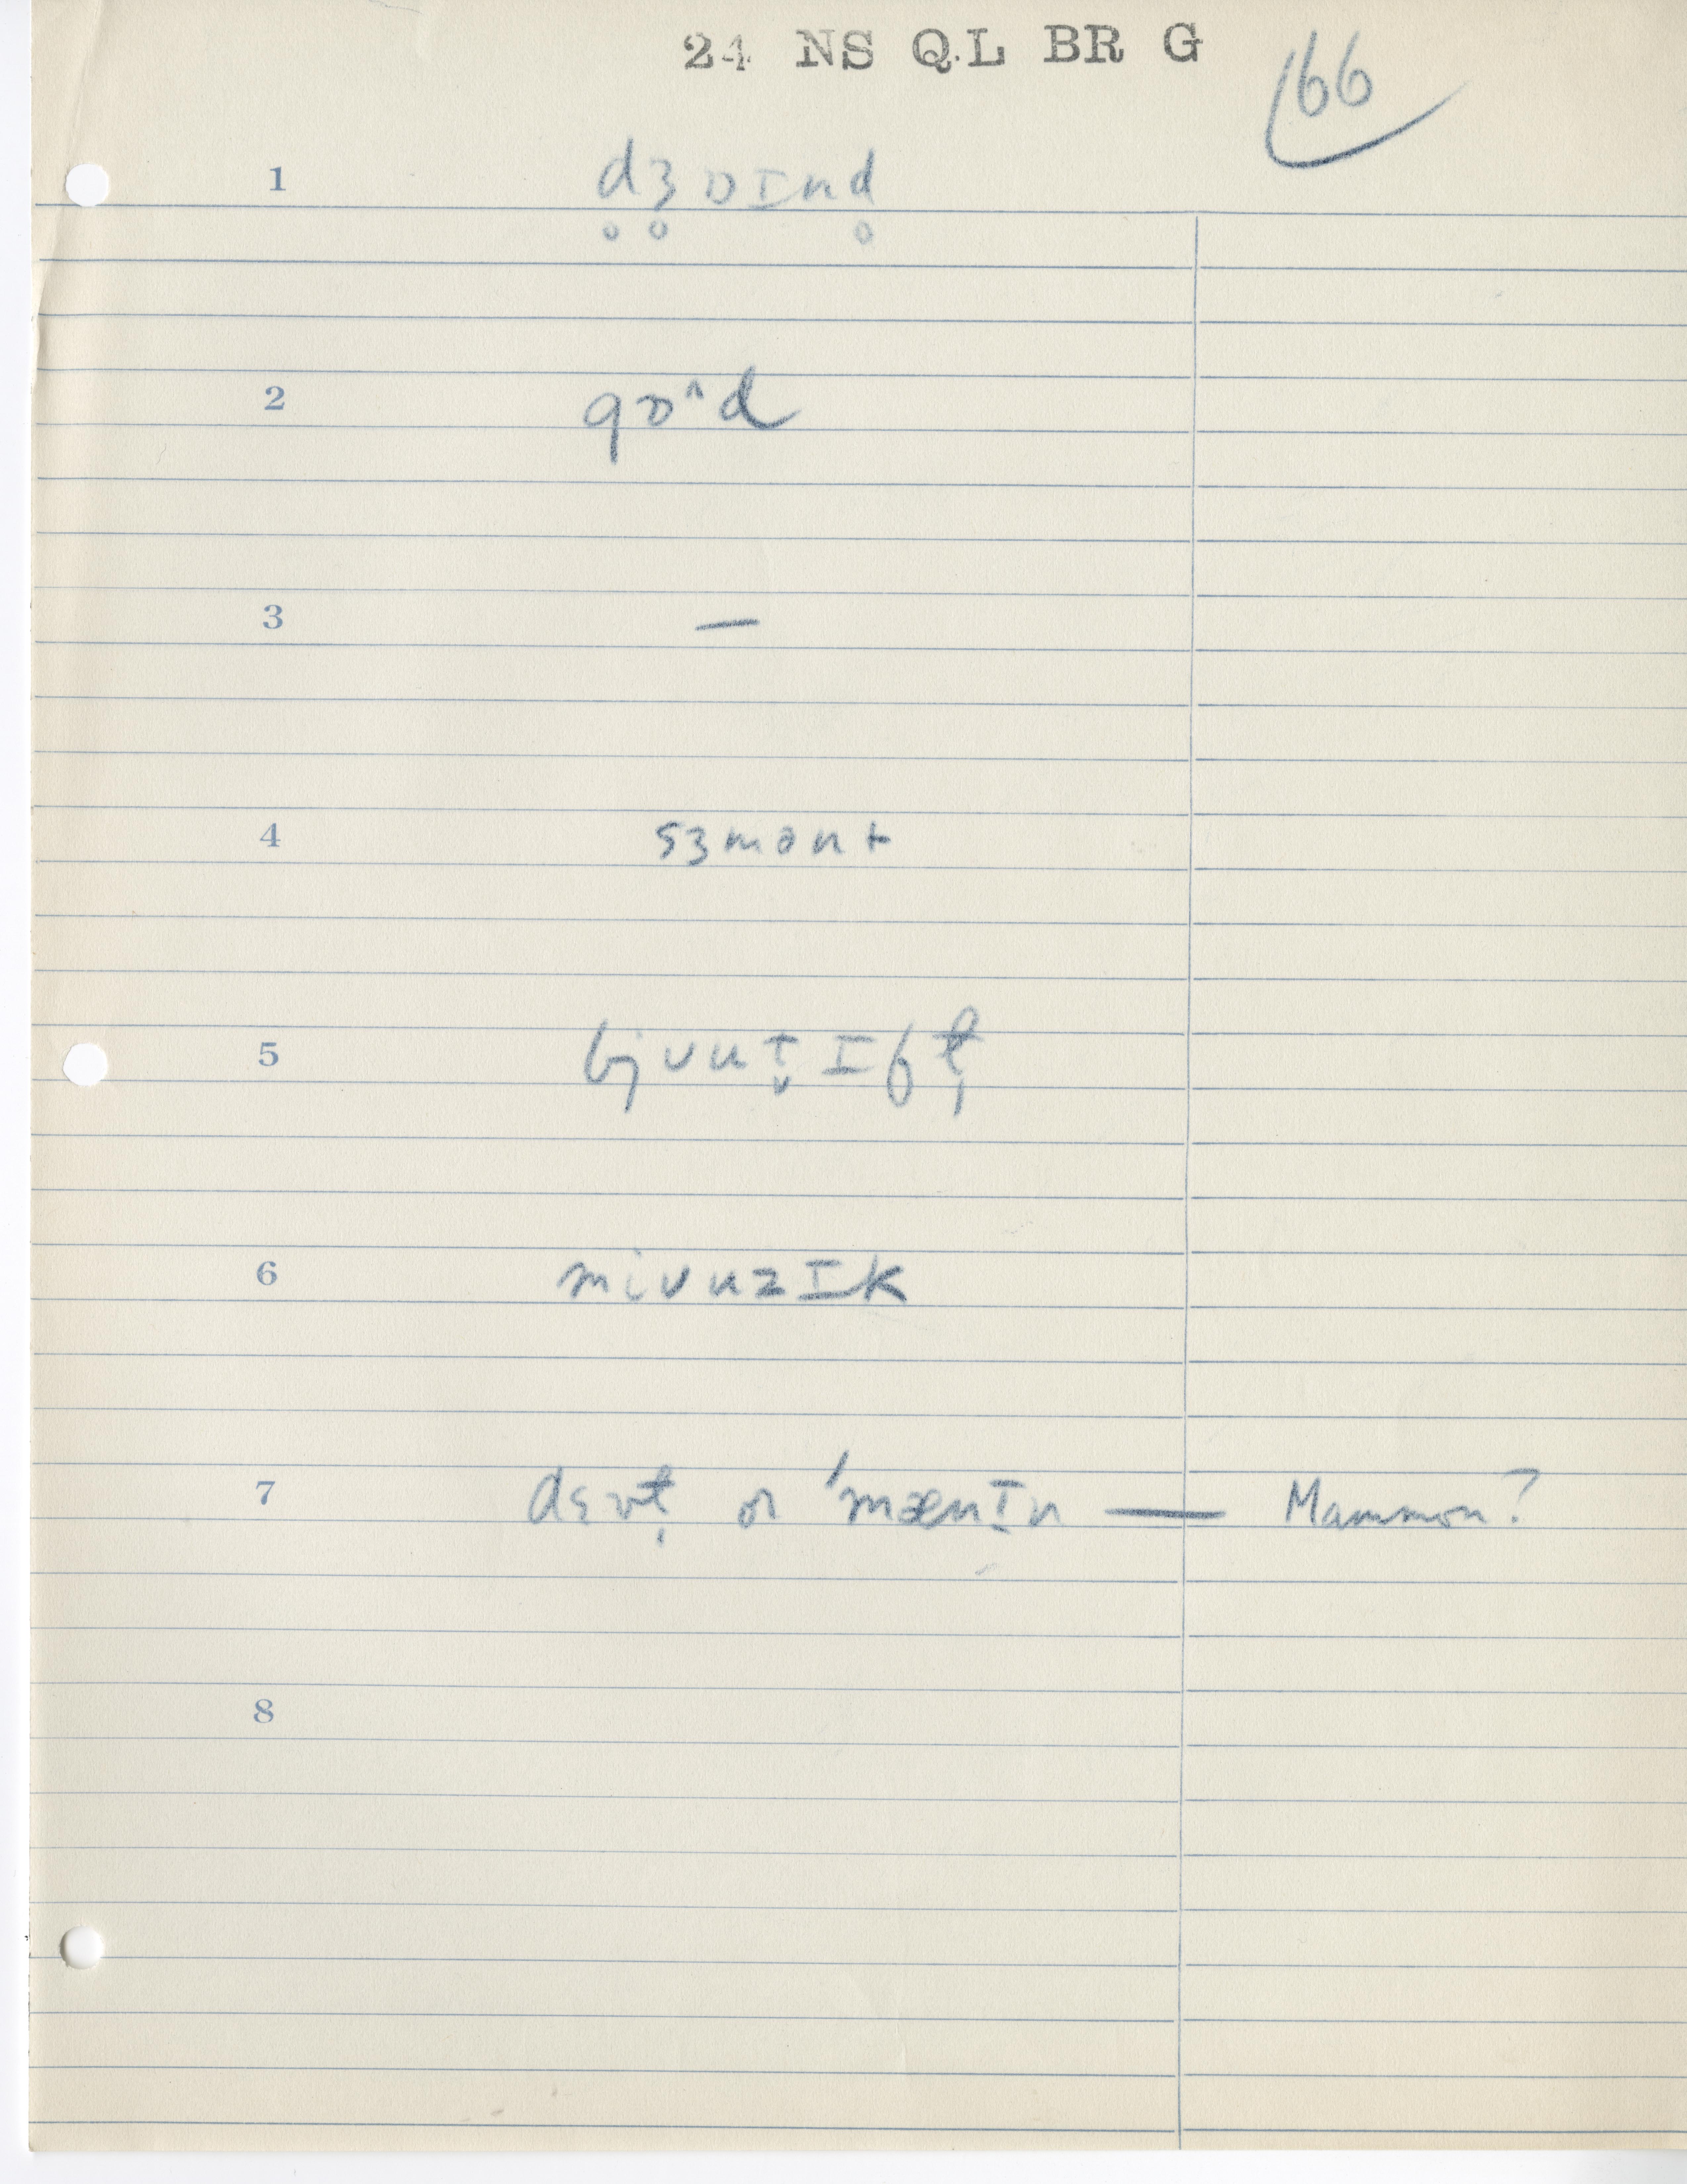 24 NS QL BR G
166
1 d̥ʒ̥ɒɪnd̥
2 gɒ^d
3 —
4 sɜmənt
5 bjʊut̬ɪfɫ̩
6 miʊuzɪk
7 dɛvɫ̩ or 'mænɪ̞n — Mammon?
8